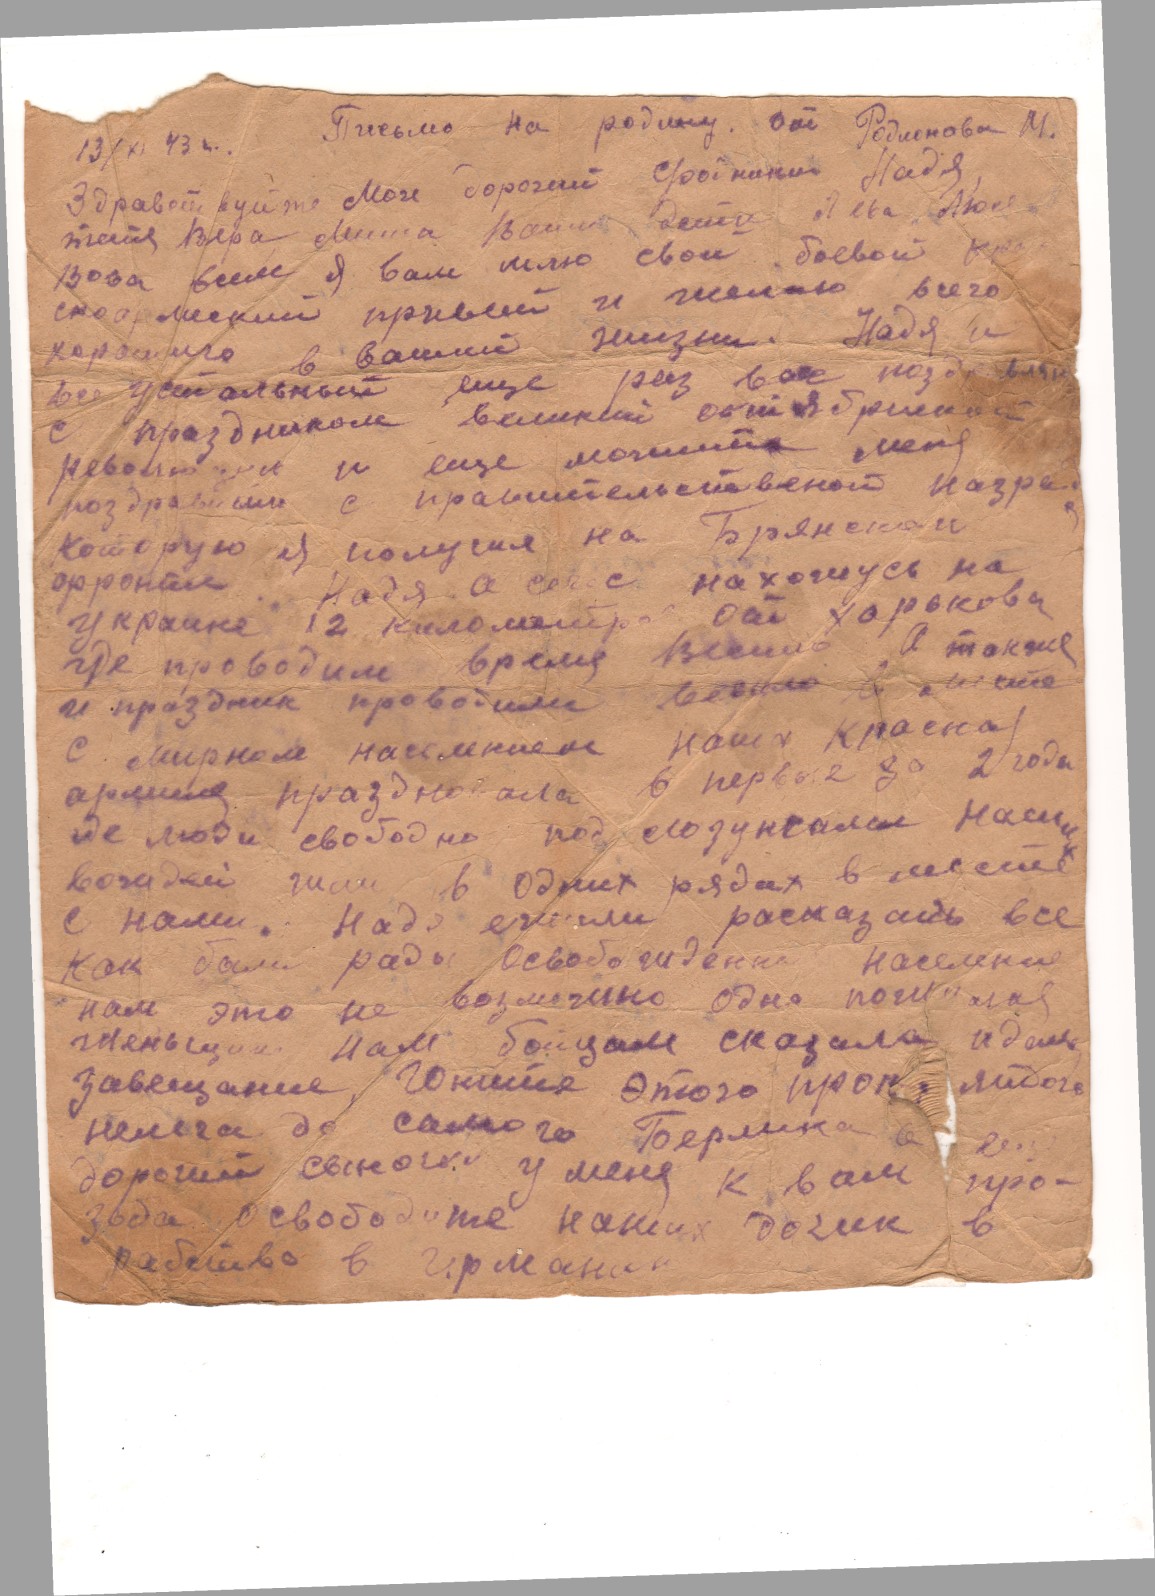 Письмо на родину. от Родионова М.
13/XI 43 г.
Здравствуйте Мои дорогий Сродники Надя,
тетя Вера Миша Ваши дети Лева Люся
Вова всем я вам шлю свой боевой кра
сноармеский привет и желаю всего
хорошиго в вашей жизни. Надя и
все устальный еще раз вас поздравляю
с праздником великий октябриской
революции и еще можите меня
поздравить с правительственой наград
которую я получил на Брянском
фронте. Надя а сейчас нахожусь на
Украине 12 километров от Харькова
где проводим время Весило А также
и праздник проводили весило в месте
с мирном насилением наша Красная
армия праздновала в первые за 2 года
где люди свободно под лозунгами наших
вождей шли в одних рядах в месте
с нами. Надя если расказать все
как были рады Освобожденно население
нам это не возможно одна пожилая
женьщина нам бойцам сказала и дала
завещание, Гоните этого проклятого
немса до самого Берлина а еще
дорогий сыночки у меня к вам про-
зьба Освободите наших дочик в
рабство в Германии